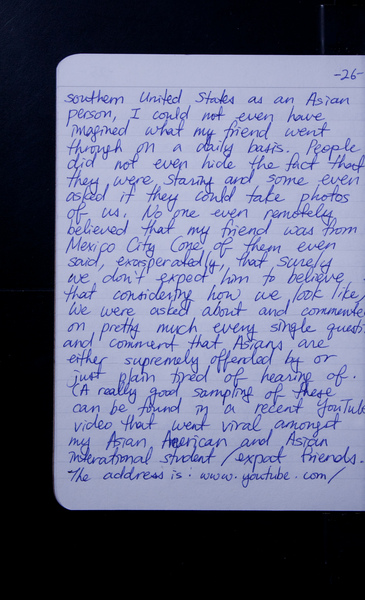 -26-
southern United States as an Asian
person, I could not even have
imagined what my friend went
through on a daily basis. People
did not even hide the fact that
they were staring and some even
asked if they could take photos
of us. No one even remotely
believed that my friend was from
Mexico City (one of them even
said, exasperatedly, that surely
we don't expect him to believe
that considering how we look like)
We were asked about and commented
on pretty much every single questi
and comment that Asians are
either supremely offended by or
just plain tired of hearing of.
(A really good sampling of these
can be found in a recent YouTube
video that went viral amongst
my Asian American and Asian
interational student/expat friends.
The address is: www.youtube.com/